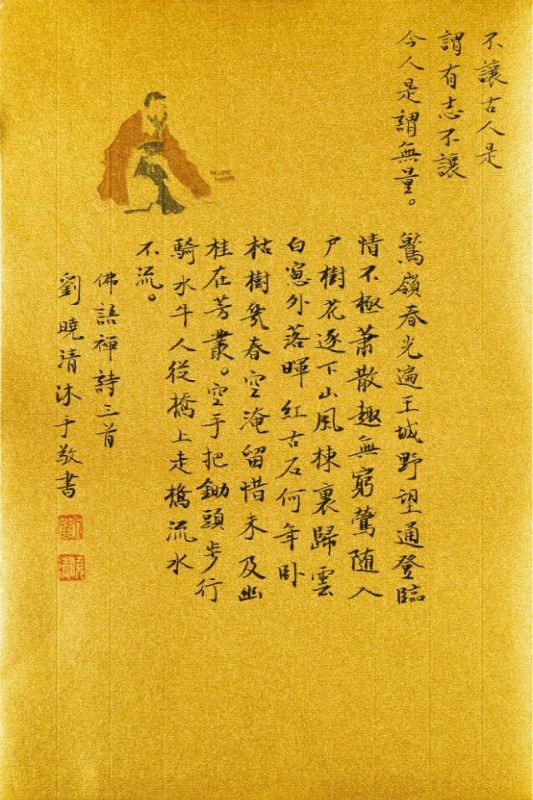 不讓古人是
謂有志不讓
今人是謂無量。
鷲嶺春光遍王城野望通登臨
情不極蕭散趣無窮鶯随入
户樹花逐下山風棟裏歸雲
白窓外落暉紅古石何年卧
枯樹幾春空淹留惜未及幽
桂在芳叢。空手把鋤頭步行
騎水牛人從橋上走橋流水
不流。
佛語禪詩三首
劉曉清沐手敬書